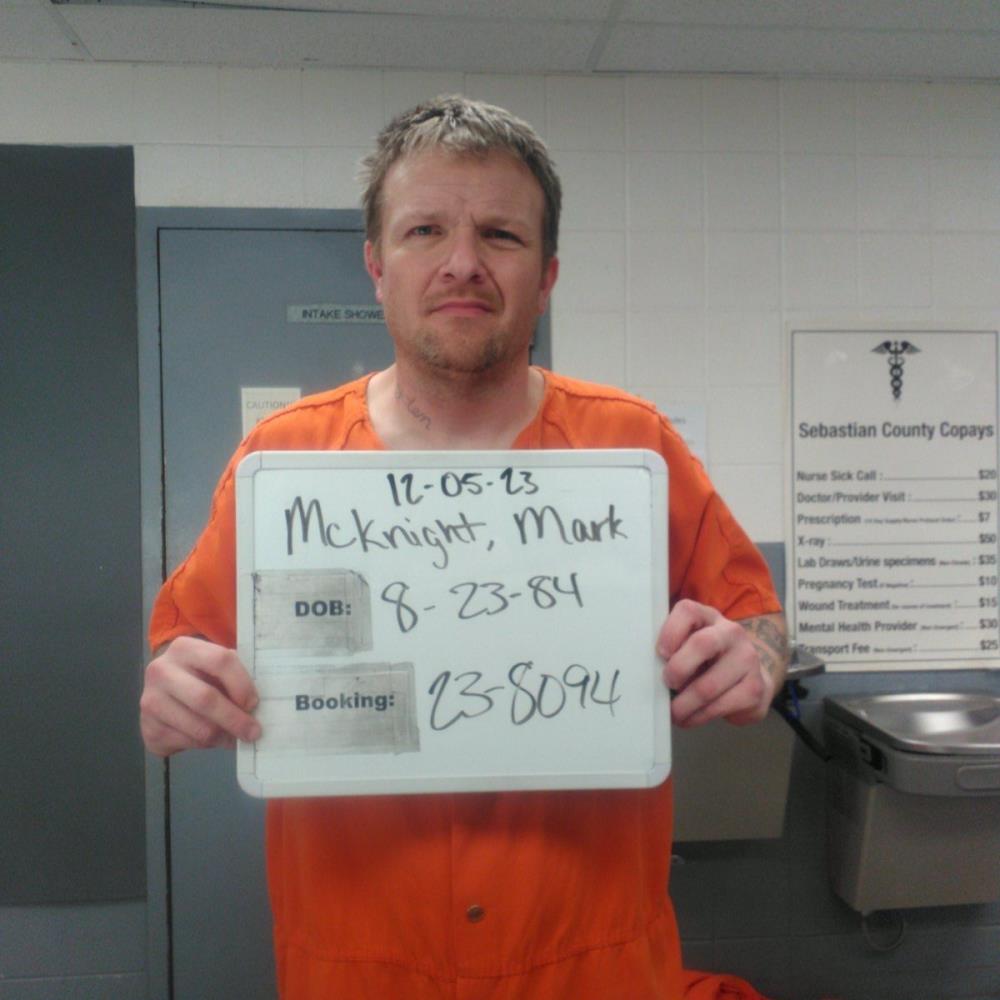 INTAKE SHOWE
CAUTION
12-05-23
McKnight, Mark
DOB: 8-23-84
Booking: 23-8094
Sebastian County Copays
Nurse Sick Call : $20
Doctor/Provider Visit : $30
Prescription : $7
X-ray : $50
Lab Draws/Urine specimens : $35
Pregnancy Test : $10
Wound Treatment : $15
Mental Health Provider : $30
Transport Fee : $25